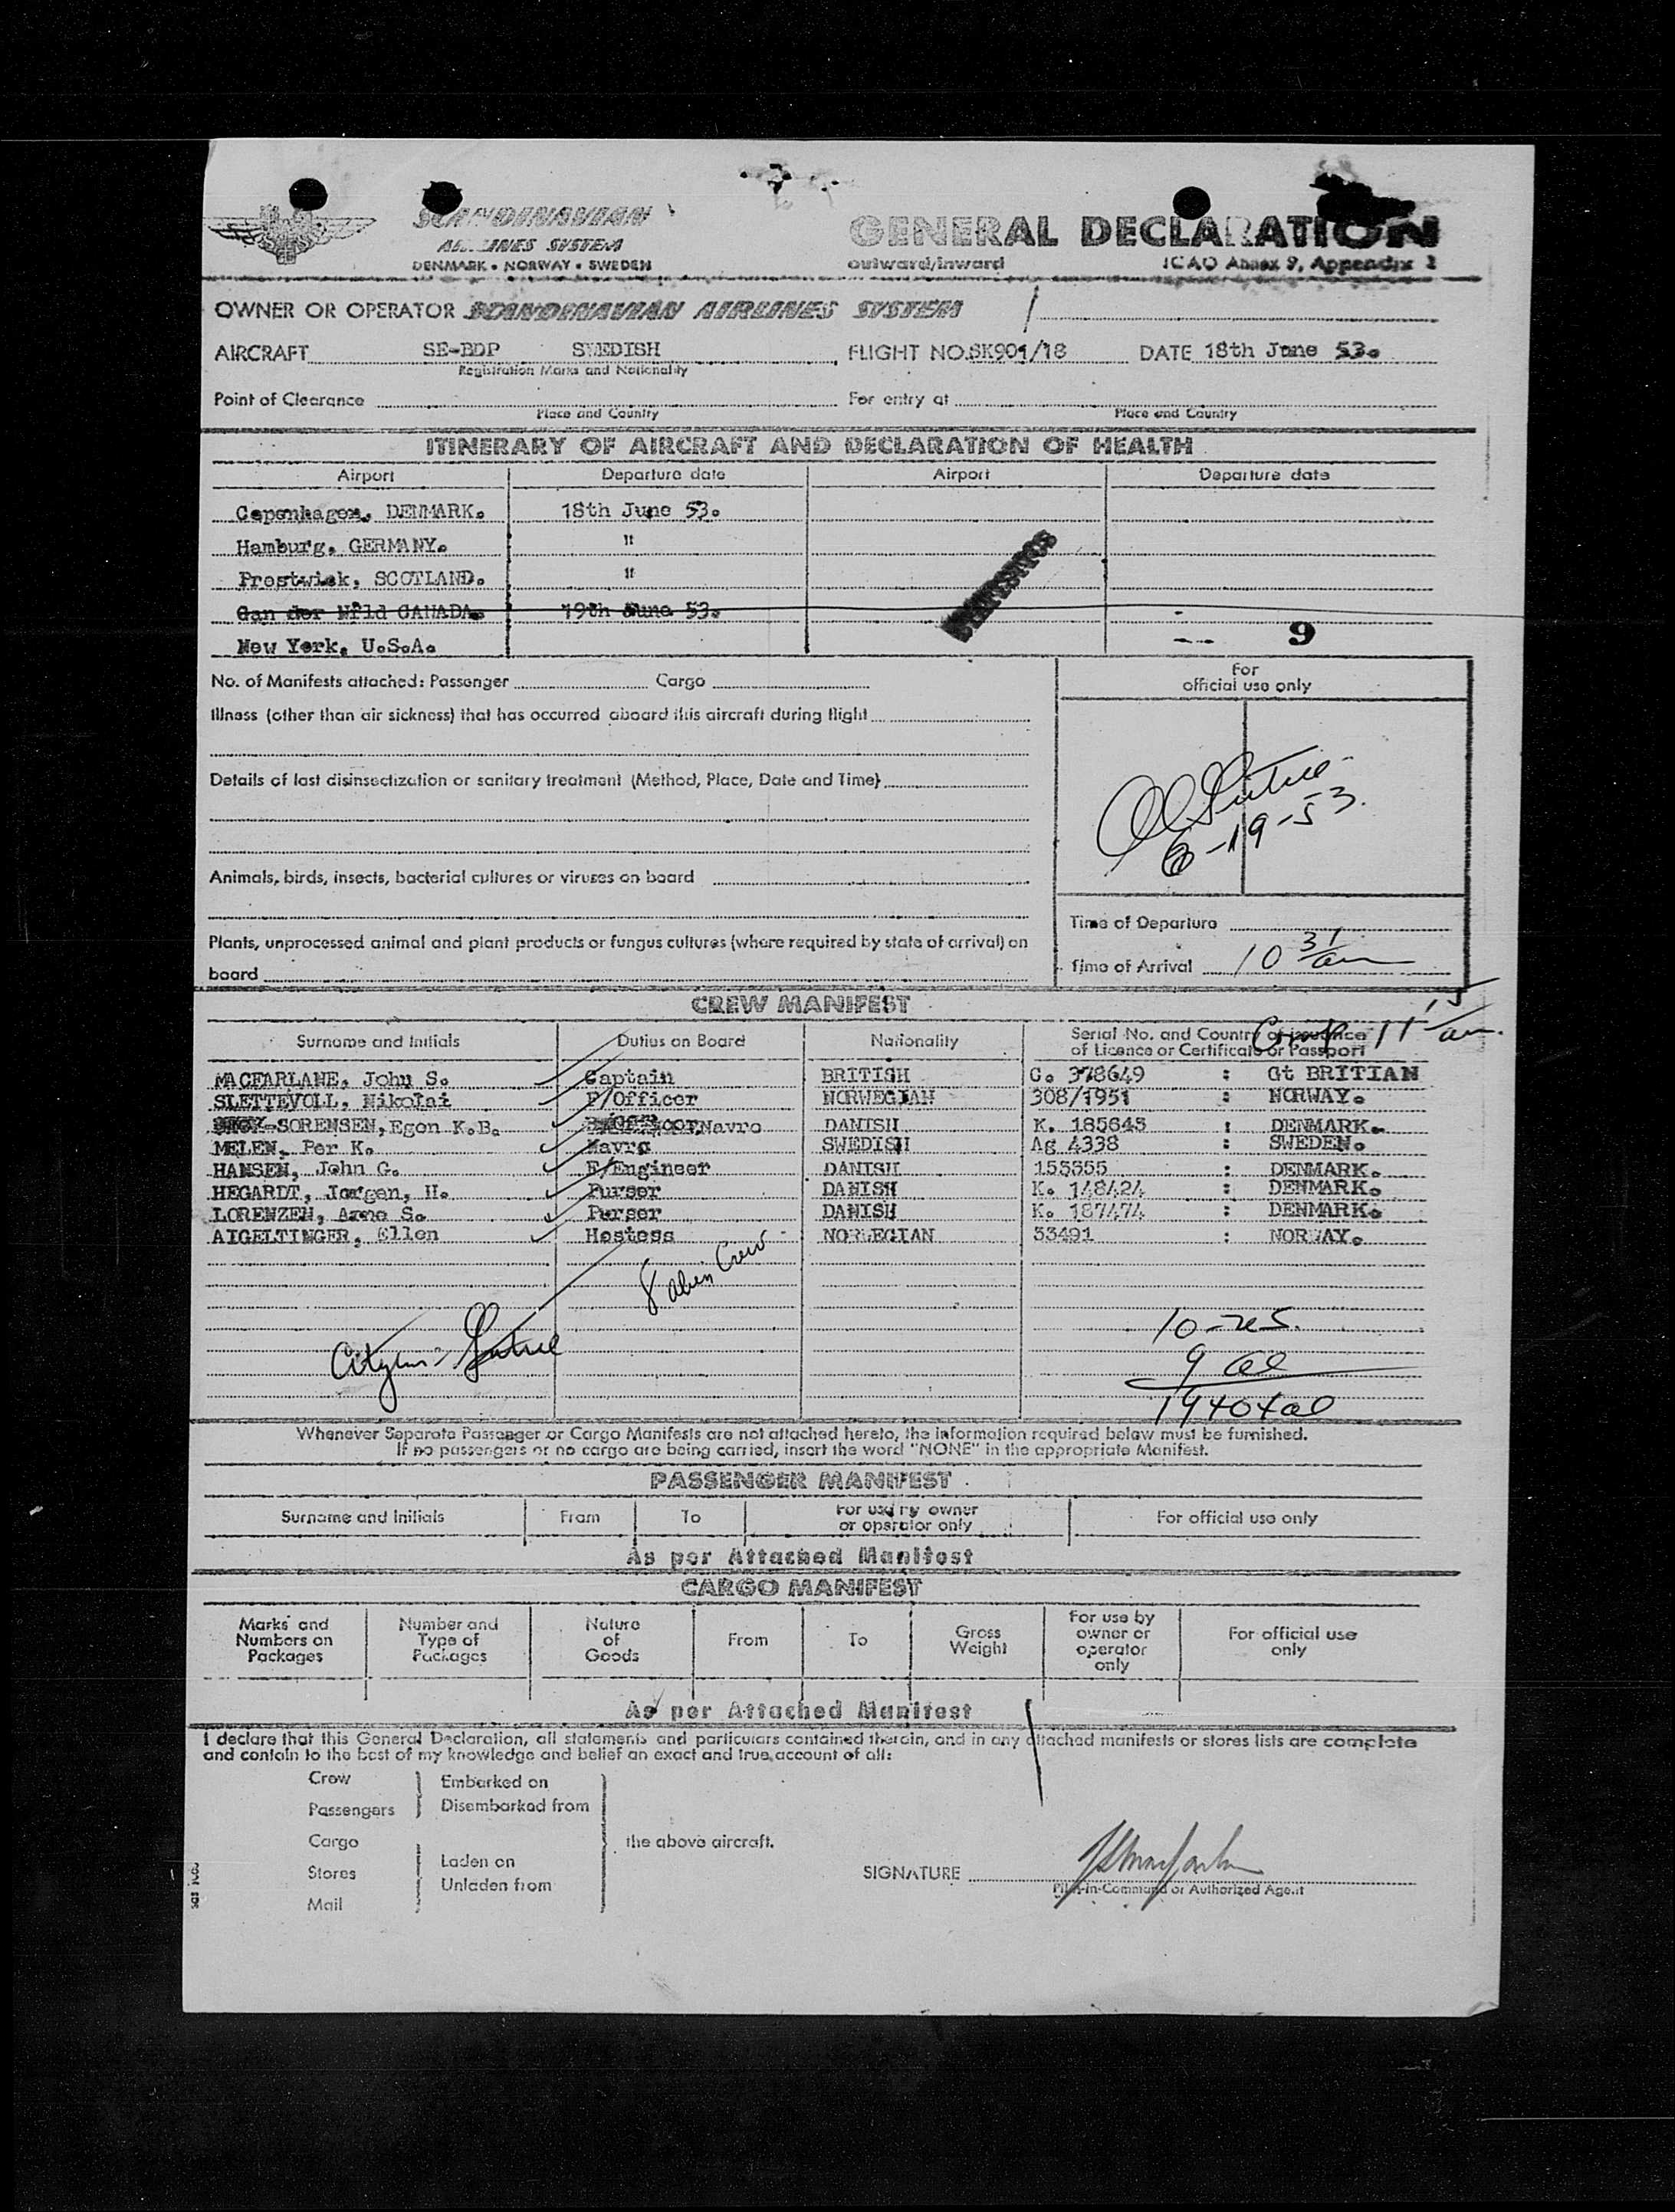 SCANDINAVIAN
AIRLINES SYSTEM
DENMARK • NORWAY • SWEDEN
GENERAL DECLARATION
outward/inward ICAO Annex 9, Appendix 1
OWNER OR OPERATOR SCANDINAVIAN AIRLINES SYSTEM
AIRCRAFT SE-BDP SWEDISH FLIGHT NO. SK901/18 DATE 18th June 53.
Registration Marks and Nationality
Point of Clearance For entry at
Place and Country Place and Country
ITINERARY OF AIRCRAFT AND DECLARATION OF HEALTH
Airport Departure date Airport Departure date
Copenhagen, DENMARK. 18th June 53.
Hamburg, GERMANY. "
Prestwick, SCOTLAND. "
Gan der Nfld CANADA. 19th June 53.
New York, U.S.A. 9
No. of Manifests attached: Passenger Cargo
For
official use only
Illness (other than air sickness) that has occurred aboard this aircraft during flight
Details of last disinsectization or sanitary treatment (Method, Place, Date and Time)
6-19-53.
Animals, birds, insects, bacterial cultures or viruses on board
Time of Departure
Plants, unprocessed animal and plant products or fungus cultures (where required by state of arrival) on
board
Time of Arrival 10 31 am
CREW MANIFEST
Comp 11 15 am.
Surname and Initials Duties on Board Nationality Serial No. and Country of issuance
of Licence or Certificate or Passport
MACFARLANE, John S. Captain BRITISH G. 378649 : Gt BRITIAN
SLETTEVOLL, Nikolai F/Officer NORWEGIAN 308/1951 : NORWAY.
-SORENSEN, Egon K.B. Navro DANISH K. 185645 : DENMARK.
MELEN, Per K. Navro SWEDISH Ag 4338 : SWEDEN.
HANSEN, John G. F/Engineer DANISH 153355 : DENMARK.
HEGARDT, Jorgen, H. Purser DANISH K. 148424 : DENMARK.
LORENZEN, Arne S. Purser DANISH K. 187474 : DENMARK.
AIGELTINGER, Ellen Hostess NORWEGIAN 33491 : NORWAY.
8 alien Crew
10-
9
19 total
Whenever Separate Passenger or Cargo Manifests are not attached hereto, the information required below must be furnished.
If no passengers or no cargo are being carried, insert the word "NONE" in the appropriate Manifest.
PASSENGER MANIFEST
Surname and Initials From To For use by owner
or operator only For official use only
As per Attached Manifest
CARGO MANIFEST
Marks and
Numbers on
Packages Number and
Type of
Packages Nature
of
Goods From To Gross
Weight For use by
owner or
operator
only For official use
only
As per Attached Manifest
I declare that this General Declaration, all statements and particulars contained therein, and in any attached manifests or stores lists are complete
and contain to the best of my knowledge and belief an exact and true account of all:
Crew Embarked on
Passengers Disembarked from
Cargo the above aircraft.
Stores Laden on
Unladen from
Mail
SIGNATURE
Pilot-in-Command or Authorized Agent